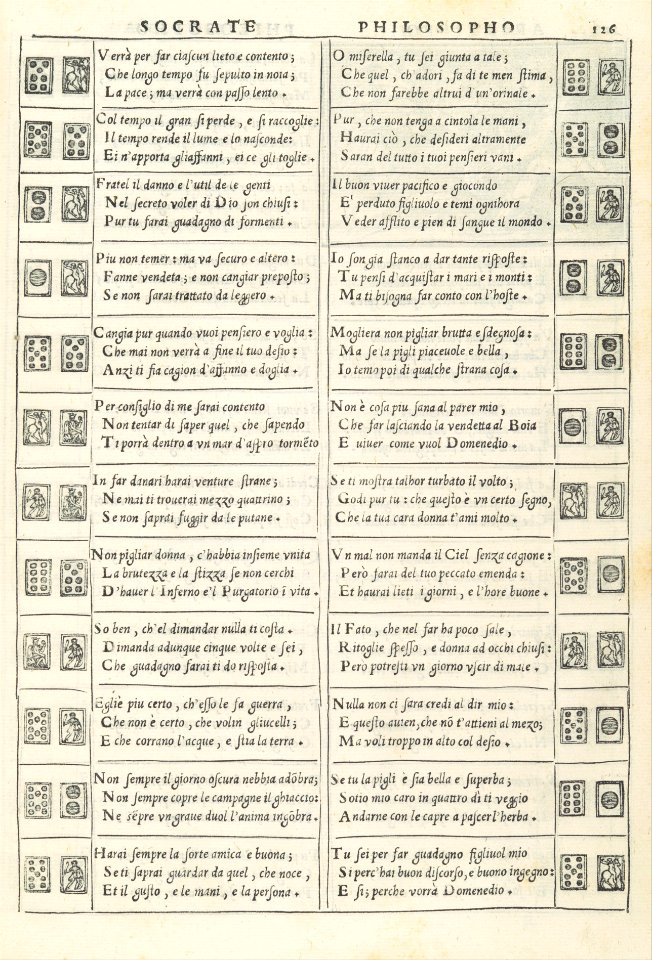 SOCRATE PHILOSOPHO 126
Verrà per far ciascun lieto e contento;
Che longo tempo fu sepulto in noia;
La pace; ma verrà con passo lento.
Col tempo il gran si perde, e si raccoglie:
Il tempo rende il lume e lo nasconde:
Ei n'apporta gli affanni, ei ce gli toglie.
Fratel il danno e l'util de le genti
Nel secreto voler di Dio son chiusi:
Pur tu farai guadagno di formenti.
Piu non temer: ma va securo e altero:
Fanne vendeta; e non cangiar preposto;
Se non sarai trattato da leggero.
Cangia pur quando vuoi pensiero e voglia:
Che mai non verrà a fine il tuo desio:
Anzi ti fia cagion d'affanno e doglia.
Per consiglio di me sarai contento
Non tentar di saper quel, che sapendo
Ti porrà dentro a vn mar d'aspro tormẽto
In far danari harai venture strane;
Ne mai ti trouerai mezzo quattrino;
Se non saprai fuggir da le putane.
Non pigliar donna, c'habbia insieme vnita
La brutezza e la stizza se non cerchi
D'hauer l'Inferno e'l Purgatorio ĩ vita.
So ben, ch'el dimandar nulla ti costa.
Dimanda adunque cinque volte e sei,
Che guadagno farai ti do risposta.
Egliè piu certo, ch'esso le sa guerra,
Che non è certo, che volin gliucelli;
E che corrano l'acque, e stia la terra.
Non sempre il giorno oscura nebbia adõbra;
Non sempre copre le campagne il ghiaccio:
Ne sẽpre vn graue duol l'anima ingõbra.
Harai sempre la sorte amica e buona;
Se ti saprai guardar da quel, che noce,
Et il gusto, e le mani, e la persona.
O miserella, tu sei giunta a tale;
Che quel, ch'adori, fa di te men stima,
Che non farebbe altrui d'un'orinale.
Pur, che non tenga a cintola le mani,
Haurai ciò, che desideri altramente
Saran del tutto i tuoi pensieri vani.
Il buon viuer pacifico e giocondo
E' perduto figliuolo e temi ognihora
Veder afflito e pien di sangue il mondo.
Io son gia stanco a dar tante risposte:
Tu pensi d'acquistar i mari e i monti:
Ma ti bisogna far conto con l'hoste.
Mogliera non pigliar brutta e sdegnosa:
Ma se la pigli piaceuole e bella,
Io temo poi di qualche strana cosa.
Non è cosa piu sana al parer mio,
Che far lasciando la vendetta al Boia
E uiuer come vuol Domenedio.
Se ti mostra talhor turbato il volto;
Godi pur tu: che questo è vn certo segno,
Che la tua cara donna t'ami molto.
Vn mal non manda il Ciel senza cagione:
Però farai del tuo peccato emenda:
Et haurai lieti i giorni, e l'hore buone.
Il Fato, che nel far ha poco sale,
Ritoglie spesso, e donna ad occhi chiusi:
Però potresti vn giorno vscir di male.
Nulla non ci sara credi al dir mio:
E questo auien, che nõ t'attieni al mezo;
Ma voli troppo in alto col desio.
Se tu la pigli è sia bella e superba;
Sotio mio caro in quattro dì ti veggio
Andarne con le capre a pascer l'herba.
Tu sei per far guadagno figliuol mio
Si perc'hai buon discorso, e buono ingegno:
E si; perche vorrà Domenedio.